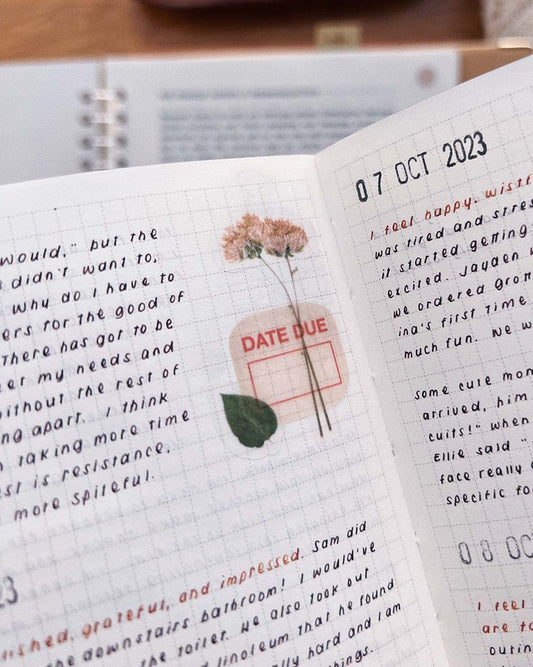 would," but the
didn't want to,
why do I have to
ers for the good of
There has got to be
er my needs and
without the rest of
ng apart. I think
taking more time
st is resistance,
more spiteful.
DATE DUE
23
nished, grateful, and impressed. Sam did
the downstairs bathroom! I would've
the toilet. We also took out
linoleum that he found
lly hard and I am
things.
07 OCT 2023
I feel happy, wistf
was tired and stres
it started getting
excited. Jayden
we ordered
ina's first time
much fun. We w
some cute mom
arrived, him
cuits!" when
Ellie said "
face really
specific fo
08 OC
I feel
are to
outin